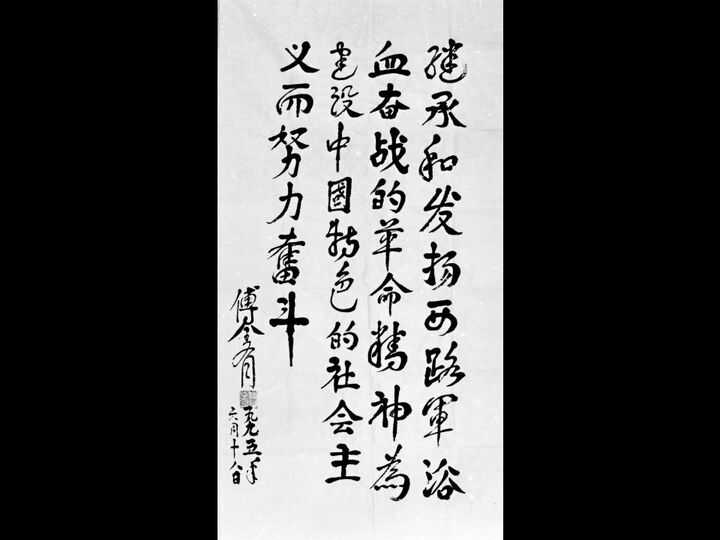 继承和发扬西路軍浴
血奋战的革命精神為
建设中國特色的社会主
义而努力奮斗
傅全有
一九九五年
六月十八日